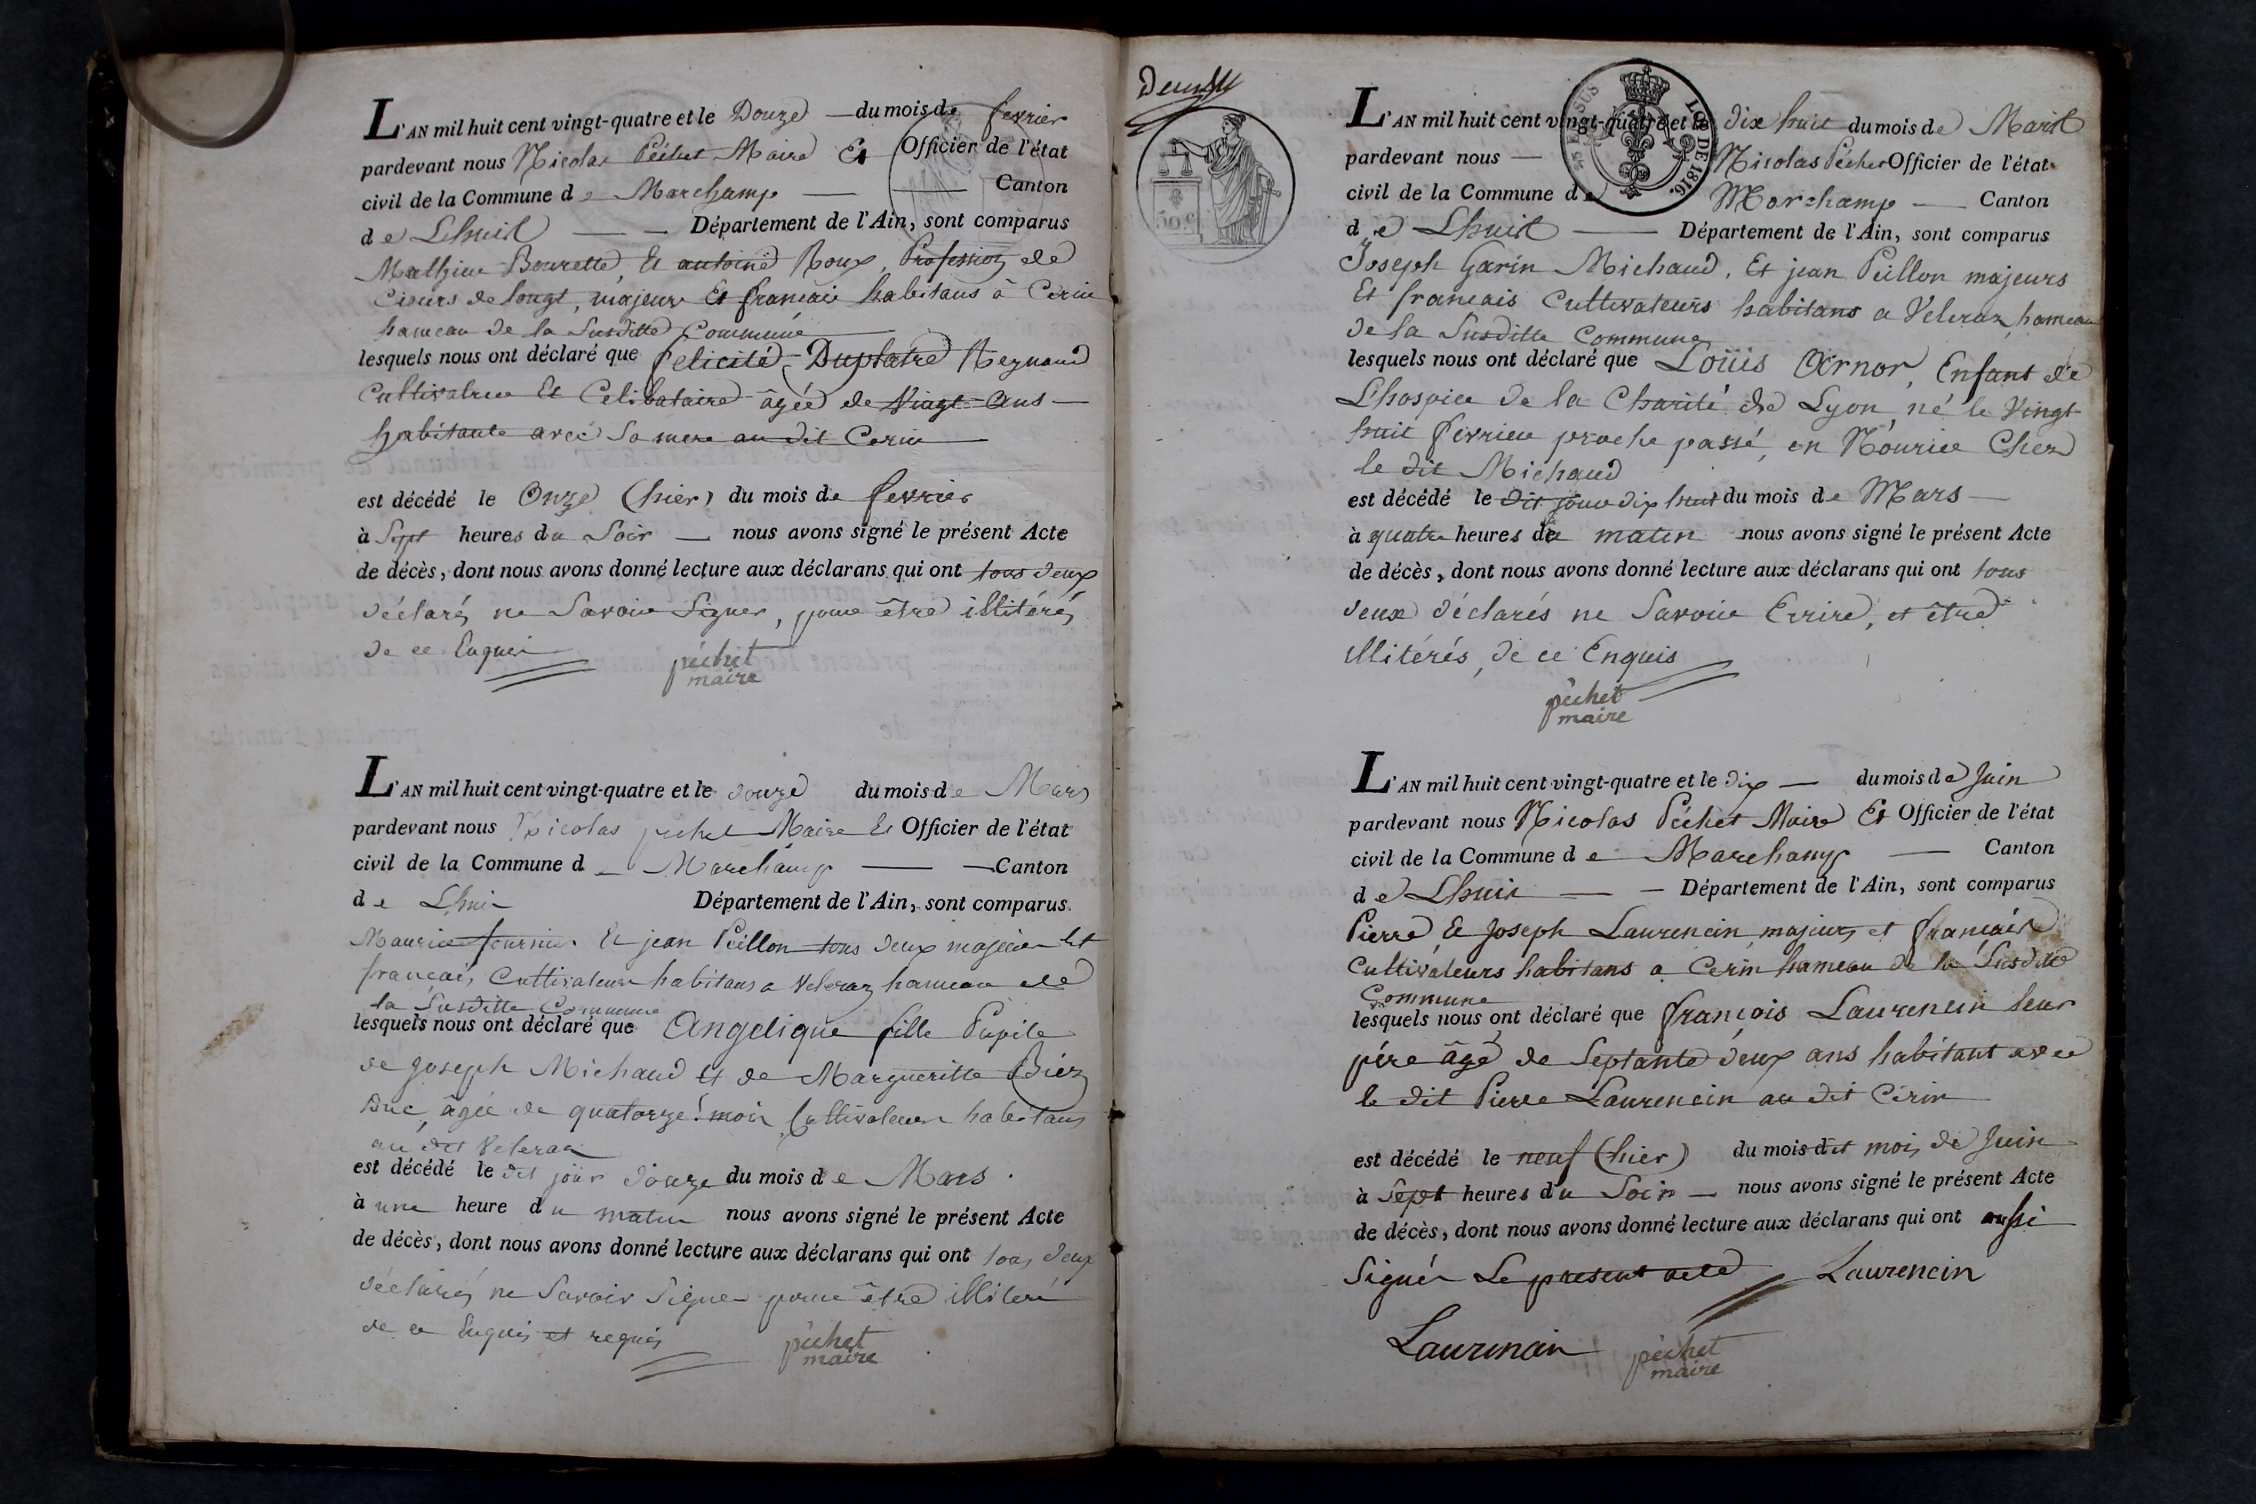 L'AN mil huit cent vingt-quatre et le Douze du mois de fevrier
pardevant nous Nicolas Péchet Maire Et Officier de l'état
civil de la Commune de Marchamp Canton
de Lhuit Département de l'Ain, sont comparus
Bourette, Et antoine Roux, Profession de
de longt, majeurs Et francais habitans à Cerin
hameau de la Susditte Commune
lesquels nous ont déclaré que felicité Duplatre Reynaud
Cultivatrice Et Celibataire âgée de Vingt Ans
habitante avec Sa mere au dit Cerin
est décédé le Onze (hier) du mois de fevrier
à Sept heures du Soir nous avons signé le présent Acte
de décès, dont nous avons donné lecture aux déclarans qui ont tous deux
déclarés ne Savoir Signer, pour être illitérés
de ce Enquis
péchet
maire
L'AN mil huit cent vingt-quatre et le douze du mois de Mars
pardevant nous Nicolas péchet Maire Et Officier de l'état
civil de la Commune de Marchamp Canton
de Lhuis Département de l'Ain, sont comparus
Maurice fournier Et jean Peillon tous deux majeurs Et
francais Cultivateurs habitans a Veleraz hameau de
la Susditte Commune
lesquels nous ont déclaré que Angelique fille Pupile
de Joseph Michaud et de Margueritte
âgée de quatorze mois Cultivateurs habitans
au dit Veleraz
est décédé le dit jour douze du mois de Mars
à une heure du matin nous avons signé le présent Acte
de décès, dont nous avons donné lecture aux déclarans qui ont tous deux
déclarés ne Savoir Signer pour être illiteré
de ce Enquis et requis
péchet
maire
50 c
LOI DE 1816.
L'AN mil huit cent vingt-quatre et le dix huit du mois de Mars
pardevant nous Nicolas Péchet Officier de l'état
civil de la Commune de Marchamp Canton
de Lhuit Département de l'Ain, sont comparus
Joseph Garin Michaud, Et jean Peillon majeurs
Et francais Cultivateurs habitans a Veleraz hameau
de la Susditte Commune
lesquels nous ont déclaré que Loüis Arnor, Enfant de
Lhospice de la Charité de Lyon né le Vingt
huit fevrier proche passé, en Nourice Chez
le dit Michaud
est décédé le dit jour dix huit du mois de Mars
à quatre heures du matin nous avons signé le présent Acte
de décès, dont nous avons donné lecture aux déclarans qui ont tous
deux déclarés ne Savoir Ecrire, et être
illitérés, de ce Enquis
péchet
maire
L'AN mil huit cent vingt-quatre et le dix du mois de Juin
pardevant nous Nicolas Péchet Maire Et Officier de l'état
civil de la Commune de Marchamp Canton
de Lhuis Département de l'Ain, sont comparus
Pierre & Joseph Laurencin majeurs et francais
Cultivateurs habitans a Cerin hameau de la Susditte
Commune
lesquels nous ont déclaré que françois Laurencin leur
pére âgé de Septante deux ans habitant avec
le dit Pierre Laurencin au dit Cérin
est décédé le neuf (hier) du mois dit mois de Juin
à Sept heures du Soir nous avons signé le présent Acte
de décès, dont nous avons donné lecture aux déclarans qui ont aussi
Signés Le present acte Laurencin
Laurencin péchet
maire